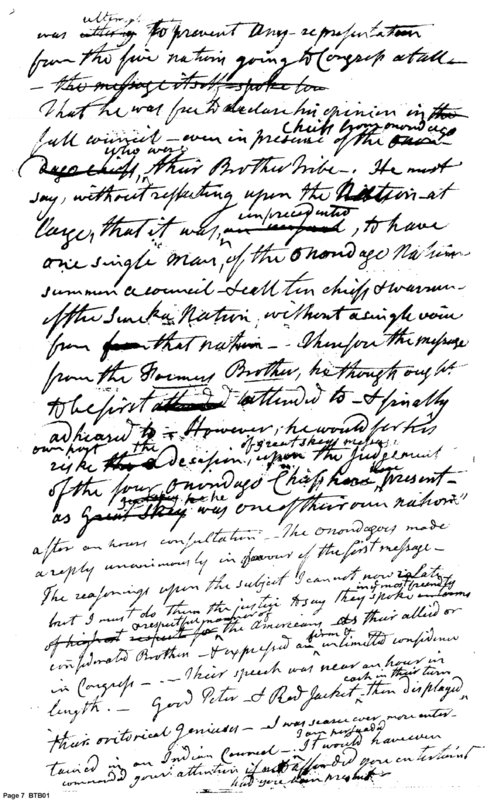 attempt
was uttering to prevent any representation
from the five nations going to Congress at all —
— the message itself spoke low
That he was free to declare his opinion in the
Chiefs from onondago
full council — even in presence of the
who were
dago chiefs, their Brother tribe —. He must
say, without reflecting upon the Nation at
unprecedented
large, that it was, an unusual, to have
one single "man", of the onondago Nation
summon a council & call ten chiefs & warriors
of the Seneka Nation, without a single voice
from from that nation — Therefore the message
from the Farmers Brother, he thought ought
to be first attended attended to & finally
adheared to — However, he would for his
own part the if great skeys message
riske the decision, upon the judgement
of the four onondago Chiefs here present —
he
as Great Skey was one of their own nation"
after an hours consultation — The onondagoes made
a reply unanimously in favour of the first message —
The reasonings upon the subject I cannot now relate
in most friendly
but I must do them the justice to say they spoke in terms
& respectful manner of
of highest respect for the Americans as their allied or
firm &
confederated Brothers — & expressed an unlimitted confidence
in Congress — Their speech was near an hour in
each in their turn
length. — Good Peter & Red Jacket then displayed
their oritorical Geniuses — I was scarce ever more enter-
I am persuaded
tained in an Indian Council — It would have even
commanded your attention if not afforded you entertainmt
had you been present
Page 7 BTB01